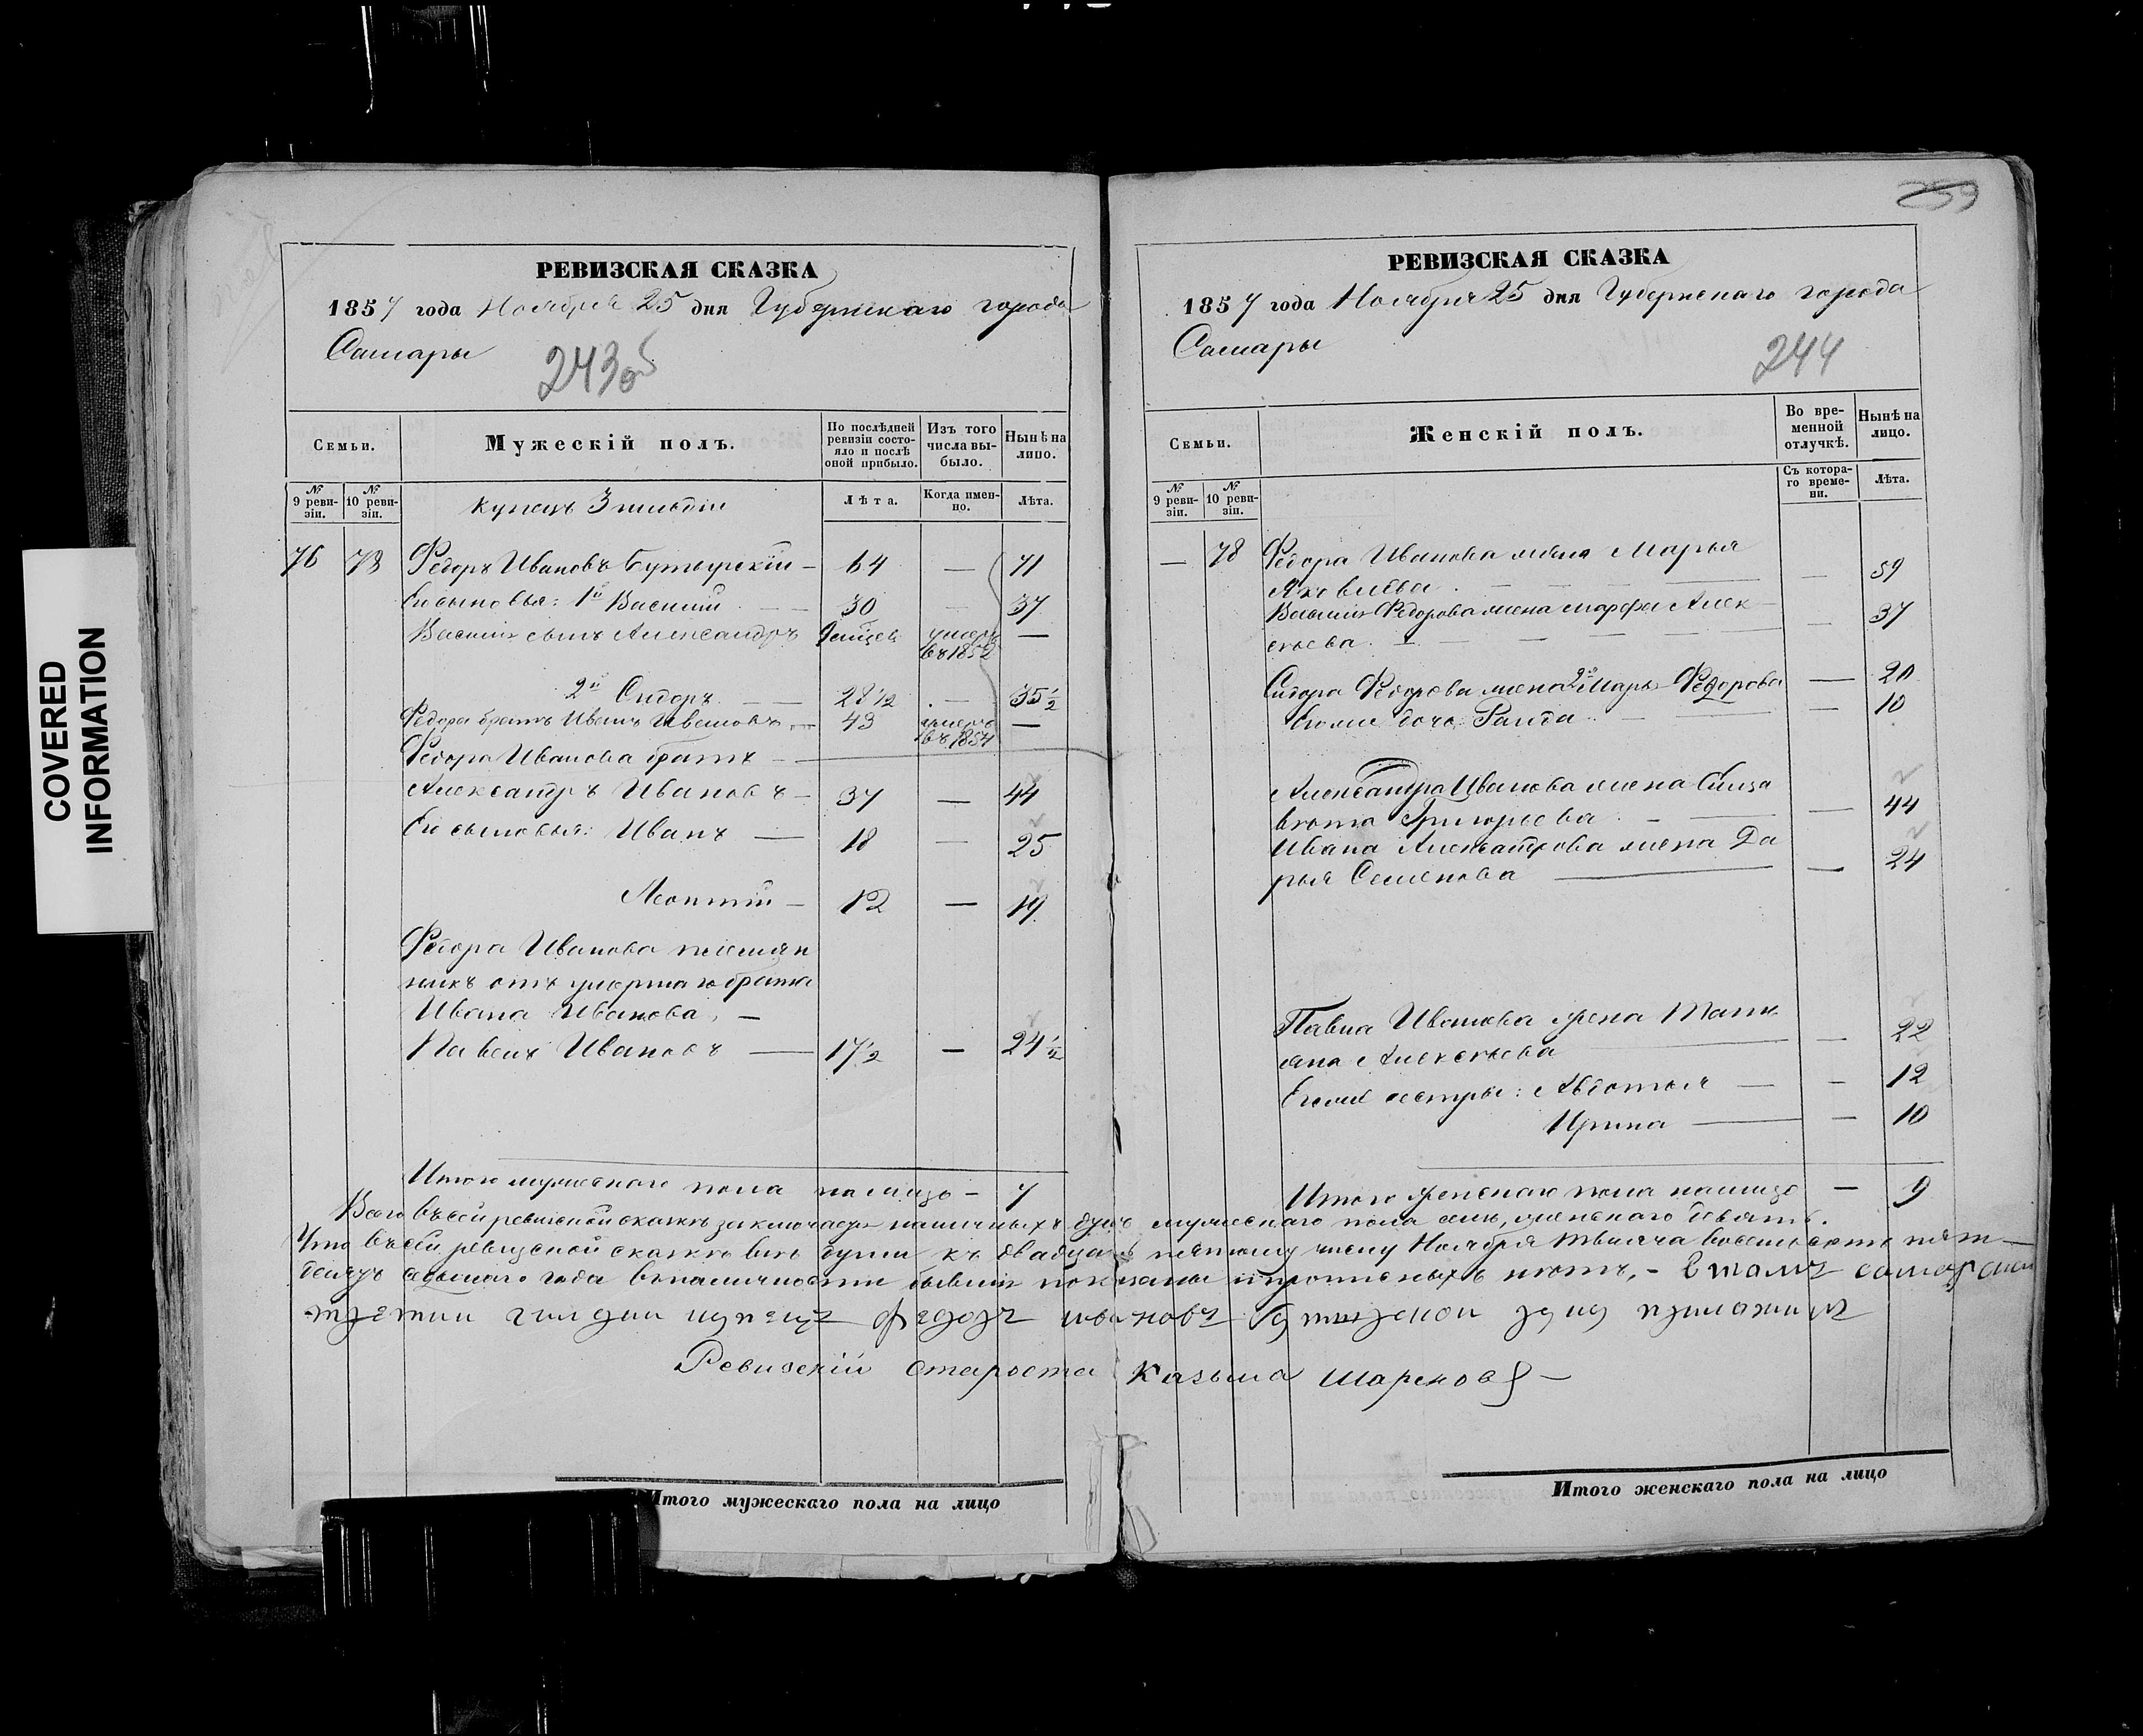 COVERED
INFORMATION
РЕВИЗСКАЯ СКАЗКА
1857 года Ноября 25 дня Губернскаго города
Самары
243 об
Семьи.
Мужескій полъ.
По послѣдней ревизіи состояло и послѣ оной прибыло.
Изъ того числа выбыло.
Нынѣ на лицо.
№ 9 ревизіи.
№ 10 ревизіи.
Купецъ 3 гильдіи
Лѣта.
Когда именно.
Лѣта.
76 78 Федоръ Ивановъ Бутырскій — 64 — 71
Его сыновья: 1й Василій — 30 — 37
Василія сынъ Александръ умеръ въ 1852 —
2й Сидоръ — 28 1/2 — 35 1/2
Федора братъ Иванъ Ивановъ — 43 умеръ въ 1854 —
Федора Иванова братъ —
Александръ Ивановъ — 37 — 44
Его сыновья: Иванъ — 18 — 25
Леонтій — 12 — 19
Федора Иванова племян
никъ отъ умершаго брата
Ивана Иванова, —
Павелъ Ивановъ — 17 1/2 — 24 1/2
Итого мужескаго пола на лицо — 7
259
РЕВИЗСКАЯ СКАЗКА
1857 года Ноября 25 дня Губернскаго города
Самары
244
Семьи.
Женскій полъ.
Во временной отлучкѣ.
Нынѣ на лицо.
№ 9 ревизіи.
№ 10 ревизіи.
Съ котораго времени.
Лѣта.
— 78 Федора Иванова жена Марья
Яковлева — 59
Василія Федорова жена Марфа Алек
сѣева — 37
Сидора Федорова жена 2я Марья Федорова — 20
Его же дочь — 10
Александра Иванова жена Елиза
вѣта Григорьева — 44
Ивана Александрова жена Да
рья Семенова — 24
Павла Иванова жена Татья
яна Алексѣева — 22
Его же сестры: Авдотья — 12
Ирина — 10
Итого женскаго пола на лицо — 9
Всего въ сей ревизской сказкѣ заключается наличныхъ душъ мужескаго пола семь, женскаго девять.
Что въ сей ревизской сказкѣ всѣ души къ двадцать пятому числу Ноября тысяча восемьсотъ пять
десятъ седьмого года въ наличности бывшія показаны и прописныхъ нѣтъ, — в томъ самарской
третии гилдии купецъ федоръ ивановъ руку приложилъ
Ревизскій Староста Казьма
Итого мужескаго пола на лицо
Итого женскаго пола на лицо